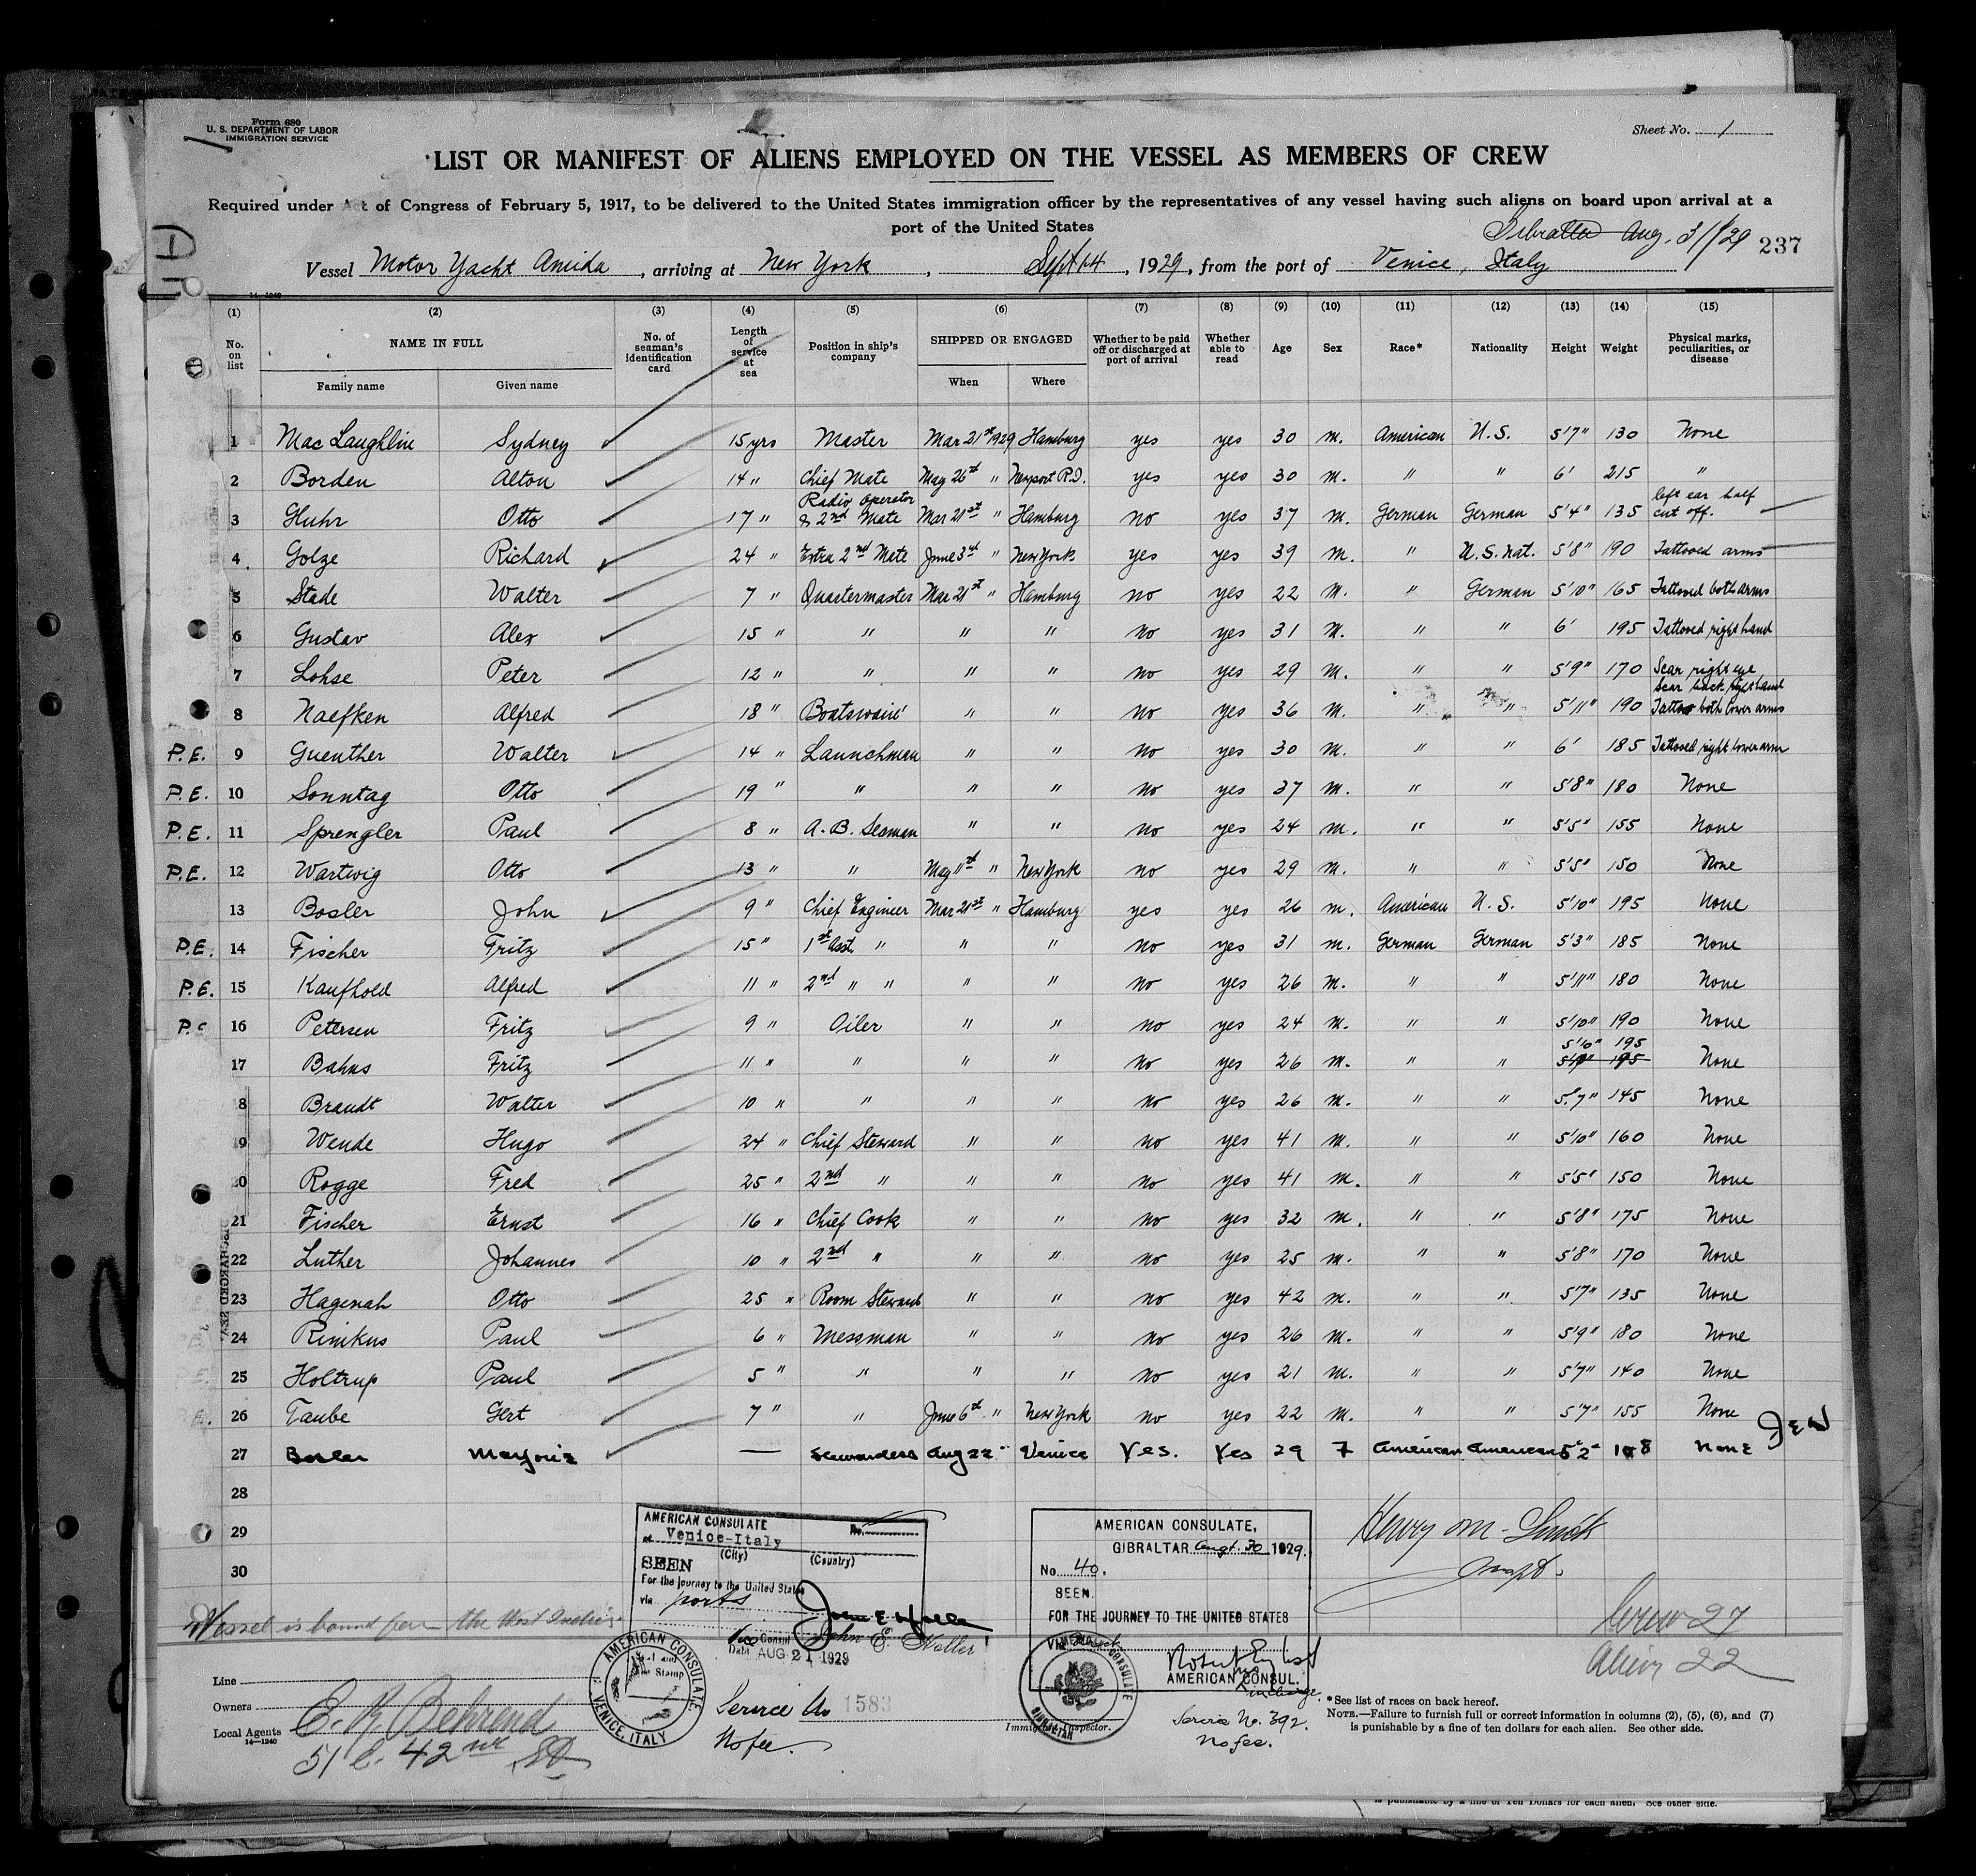 Form 680
U. S. DEPARTMENT OF LABOR
IMMIGRATION SERVICE
Sheet No. 1
LIST OR MANIFEST OF ALIENS EMPLOYED ON THE VESSEL AS MEMBERS OF CREW
Required under Act of Congress of February 5, 1917, to be delivered to the United States immigration officer by the representatives of any vessel having such aliens on board upon arrival at a
port of the United States
Gibraltar Aug. 31/29 237
Vessel Motor Yacht Amida, arriving at New York, Sept 14, 1929, from the port of Venice, Italy
14—1240
(1) (2) (3) (4) (5) (6) (7) (8) (9) (10) (11) (12) (13) (14) (15)
No. on list NAME IN FULL No. of seaman's identification card Length of service at sea Position in ship's company SHIPPED OR ENGAGED Whether to be paid off or discharged at port of arrival Whether able to read Age Sex Race* Nationality Height Weight Physical marks, peculiarities, or disease
Family name Given name When Where
1 Mac Laughlin Sydney 15 yrs Master Mar 21st 1929 Hamburg yes yes 30 m. American U.S. 5'7" 130 None
2 Borden Alton 14 " Chief Mate May 26th " Newport R.I. yes yes 30 m. " " 6' 215 "
3 Huhr Otto 17 " Radio operator & 2nd Mate Mar 21st " Hamburg no yes 37 m. German German 5'4" 135 left ear half cut off.
4 Golze Richard 24 " Extra 2nd Mate June 3rd " New York yes yes 39 m. " U.S. nat. 5'8" 190 Tattooed arms
5 Stade Walter 7 " Quartermaster Mar 21st " Hamburg no yes 22 m. " German 5'10" 165 Tattooed both arms
6 Gustav Alex 15 " " " " no yes 31 m. " " 6' 195 Tattooed right hand
7 Lohse Peter 12 " " " " no yes 29 m. " " 5'9" 170 Scar right eye
8 Naefken Alfred 18 " Boatswain " " no yes 36 m. " " 5'11" 190 Scar back right hand Tattoo both lower arms
P.E. 9 Guenther Walter 14 " Launchman " " no yes 30 m. " " 6' 185 Tattooed right lower arm
P.E. 10 Sonntag Otto 19 " " " " no yes 37 m. " " 5'8" 180 None
P.E. 11 Sprengler Paul 8 " A.B. Seaman " " no yes 24 m. " " 5'5" 155 None
P.E. 12 Wartwig Otto 13 " " May 11th " New York no yes 29 m. " " 5'5" 150 None
13 Bosler John 9 " Chief Engineer Mar 21st " Hamburg yes yes 26 m. American U.S. 5'10" 195 None
P.E. 14 Fischer Fritz 15 " 1st Asst. " " " no yes 31 m. German German 5'3" 185 None
P.E. 15 Kaufhold Alfred 11 " 2nd " " " " no yes 26 m. " " 5'11" 180 None
P.E. 16 Petersen Fritz 9 " Oiler " " no yes 24 m. " " 5'10" 190 None
5'10" 195
17 Bahns Fritz 11 " " " " no yes 26 m. " " 5'9" 195 None
18 Brandt Walter 10 " " " " no yes 26 m. " " 5'7" 145 None
19 Wende Hugo 24 " Chief Steward " " no yes 41 m. " " 5'10" 160 None
20 Rogge Fred 25 " 2nd " " " no yes 41 m. " " 5'5" 150 None
21 Fischer Ernst 16 " Chief Cook " " no yes 32 m. " " 5'8" 175 None
22 Luther Johannes 10 " 2nd " " " no yes 25 m. " " 5'8" 170 None
23 Hagenah Otto 25 " Room Steward " " no yes 42 m. " " 5'7" 135 None
24 Rinikus Paul 6 " Messman " " no yes 26 m. " " 5'9" 180 None
25 Holtrup Paul 5 " " " " no yes 21 m. " " 5'7" 140 None
26 Taube Gert 7 " " June 6th " New York no yes 22 m. " " 5'7" 155 None
27 Bosler Marjorie — Stewardess Aug 22 " Venice Yes. Yes 29 F American American 5'2" 108 None
28
29
30
AMERICAN CONSULATE
at Venice-Italy No.
(City) (Country)
SEEN
For the journey to the United States
via ports
Vice Consul John E. Holler
Date AUG 21 1929
AMERICAN CONSULATE
VENICE, ITALY
Service No 1583
No fee.
AMERICAN CONSULATE,
GIBRALTAR Augt. 30 1929.
No. 40.
SEEN.
FOR THE JOURNEY TO THE UNITED STATES
VIA
AMERICAN CONSUL.
in charge.
Service No. 392.
No fee.
Henry M. Smith
Crew 27
Aliens 22
Vessel is bound for the West Indies
Line
Owners
Local Agents E. R. Behrend
51 E. 42nd St
14—1240
Immigrant Inspector.
*See list of races on back hereof.
NOTE.—Failure to furnish full or correct information in columns (2), (5), (6), and (7)
is punishable by a fine of ten dollars for each alien. See other side.
is punishable by a fine of Ten Dollars for each alien. See other side.